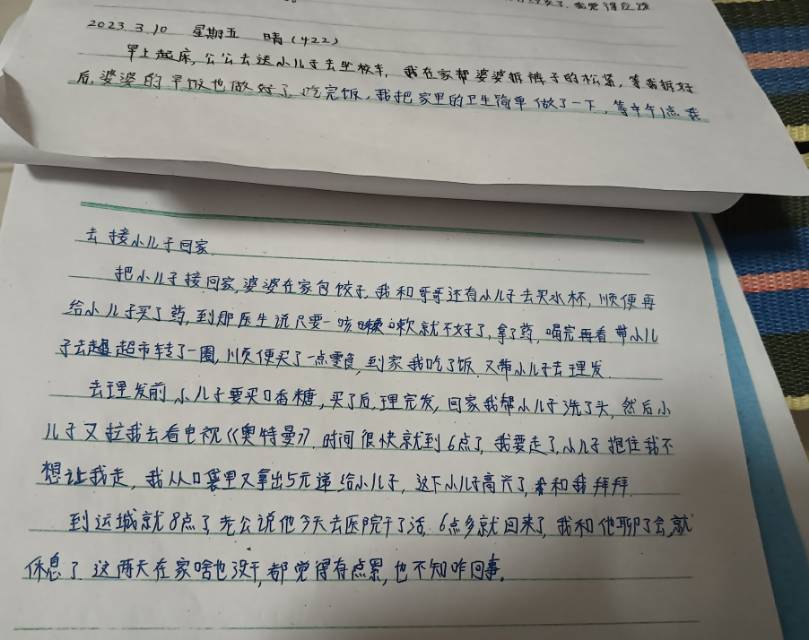 觉得应该
2023.3.10 星期五 晴(422)
早上起床,公公去送小儿子去坐校车,我在家帮婆婆拆裤子的松紧,等我拆好
后,婆婆的早饭也做好了,吃完饭,我把家里的卫生简单做了一下,等中午1点我
去接小儿子回家
把小儿子接回家,婆婆在家包饺子,我和哥哥还有小儿子去买水杯,顺便再
给小儿子买了药,到那医生说只要一咳嗽就不好了,拿了药,喝完再看,带小儿
子去超市转了一圈,顺便买了一点零食,到家我吃了饭,又带小儿子去理发
去理发前小儿子要买口香糖,买了后,理完发,回家我帮小儿子洗了头,然后小
儿子又拉我去看电视《奥特曼》,时间很快就到6点了,我要走了,小儿子抱住我不
想让我走,我从口袋里又拿出5元递给小儿子,这下小儿子高兴了,和我拜拜
到运城就8点了,老公说他今天去医院干了活,6点多就回来了,我和他聊了会,就
休息了,这两天在家啥也没干,都觉得有点累,也不知咋回事。